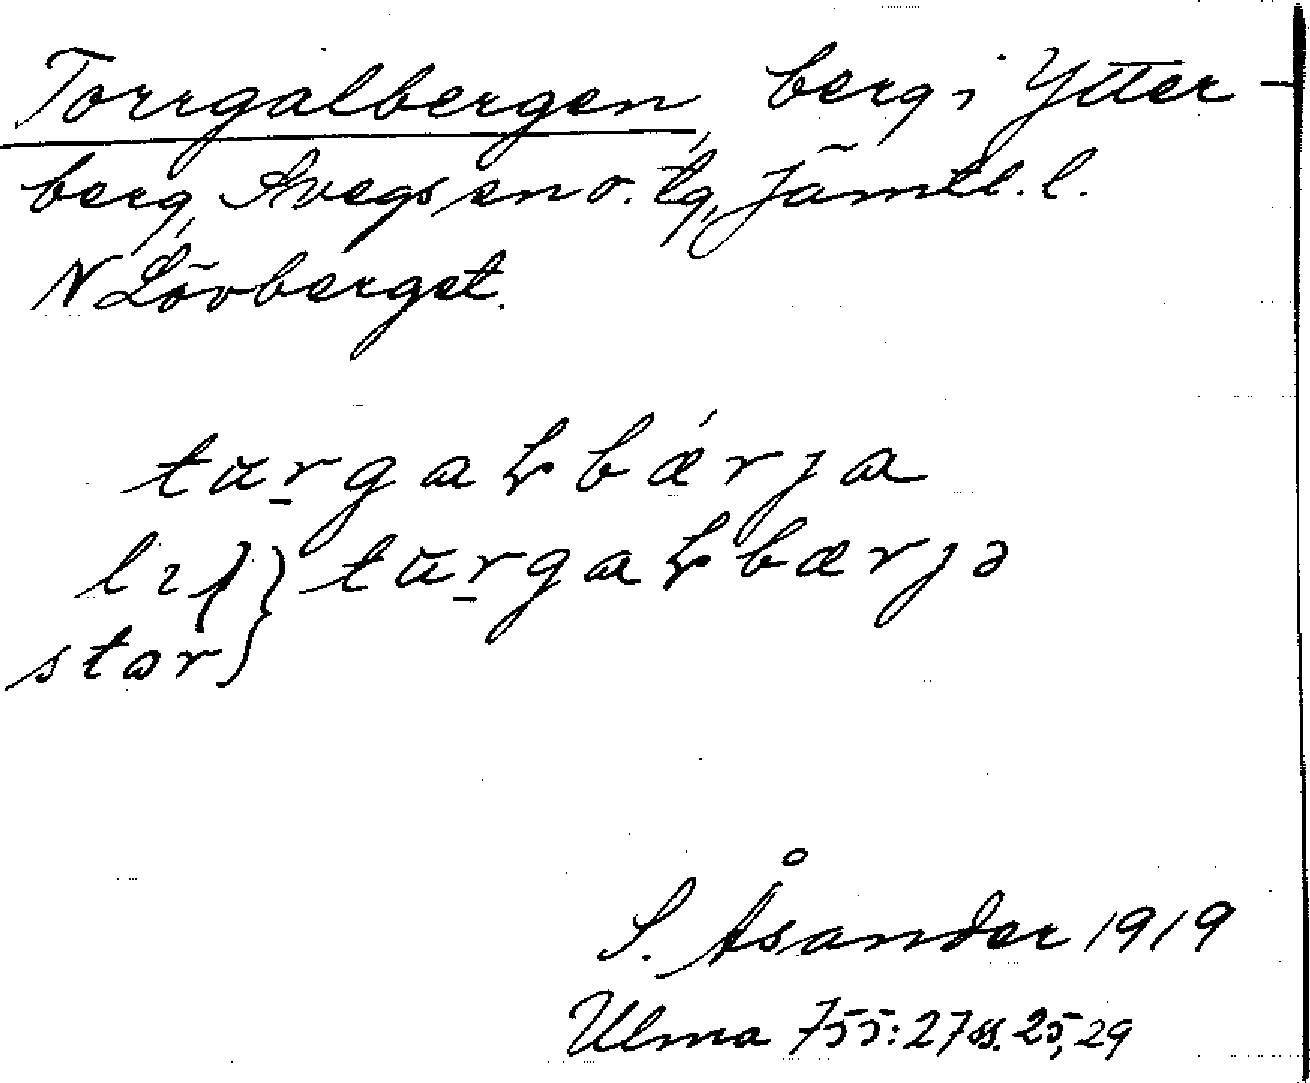 Torrgalbergen, berg i Ytter-
berg, Svegs sn o. tg, Jämtl. l.
N Lövberget.
tu̱rgaƚbǽrja
liʃ } tu̱rgaƚbærjə
stor }
S. Åsander 1919
Ulma 755:27 ss. 25, 29